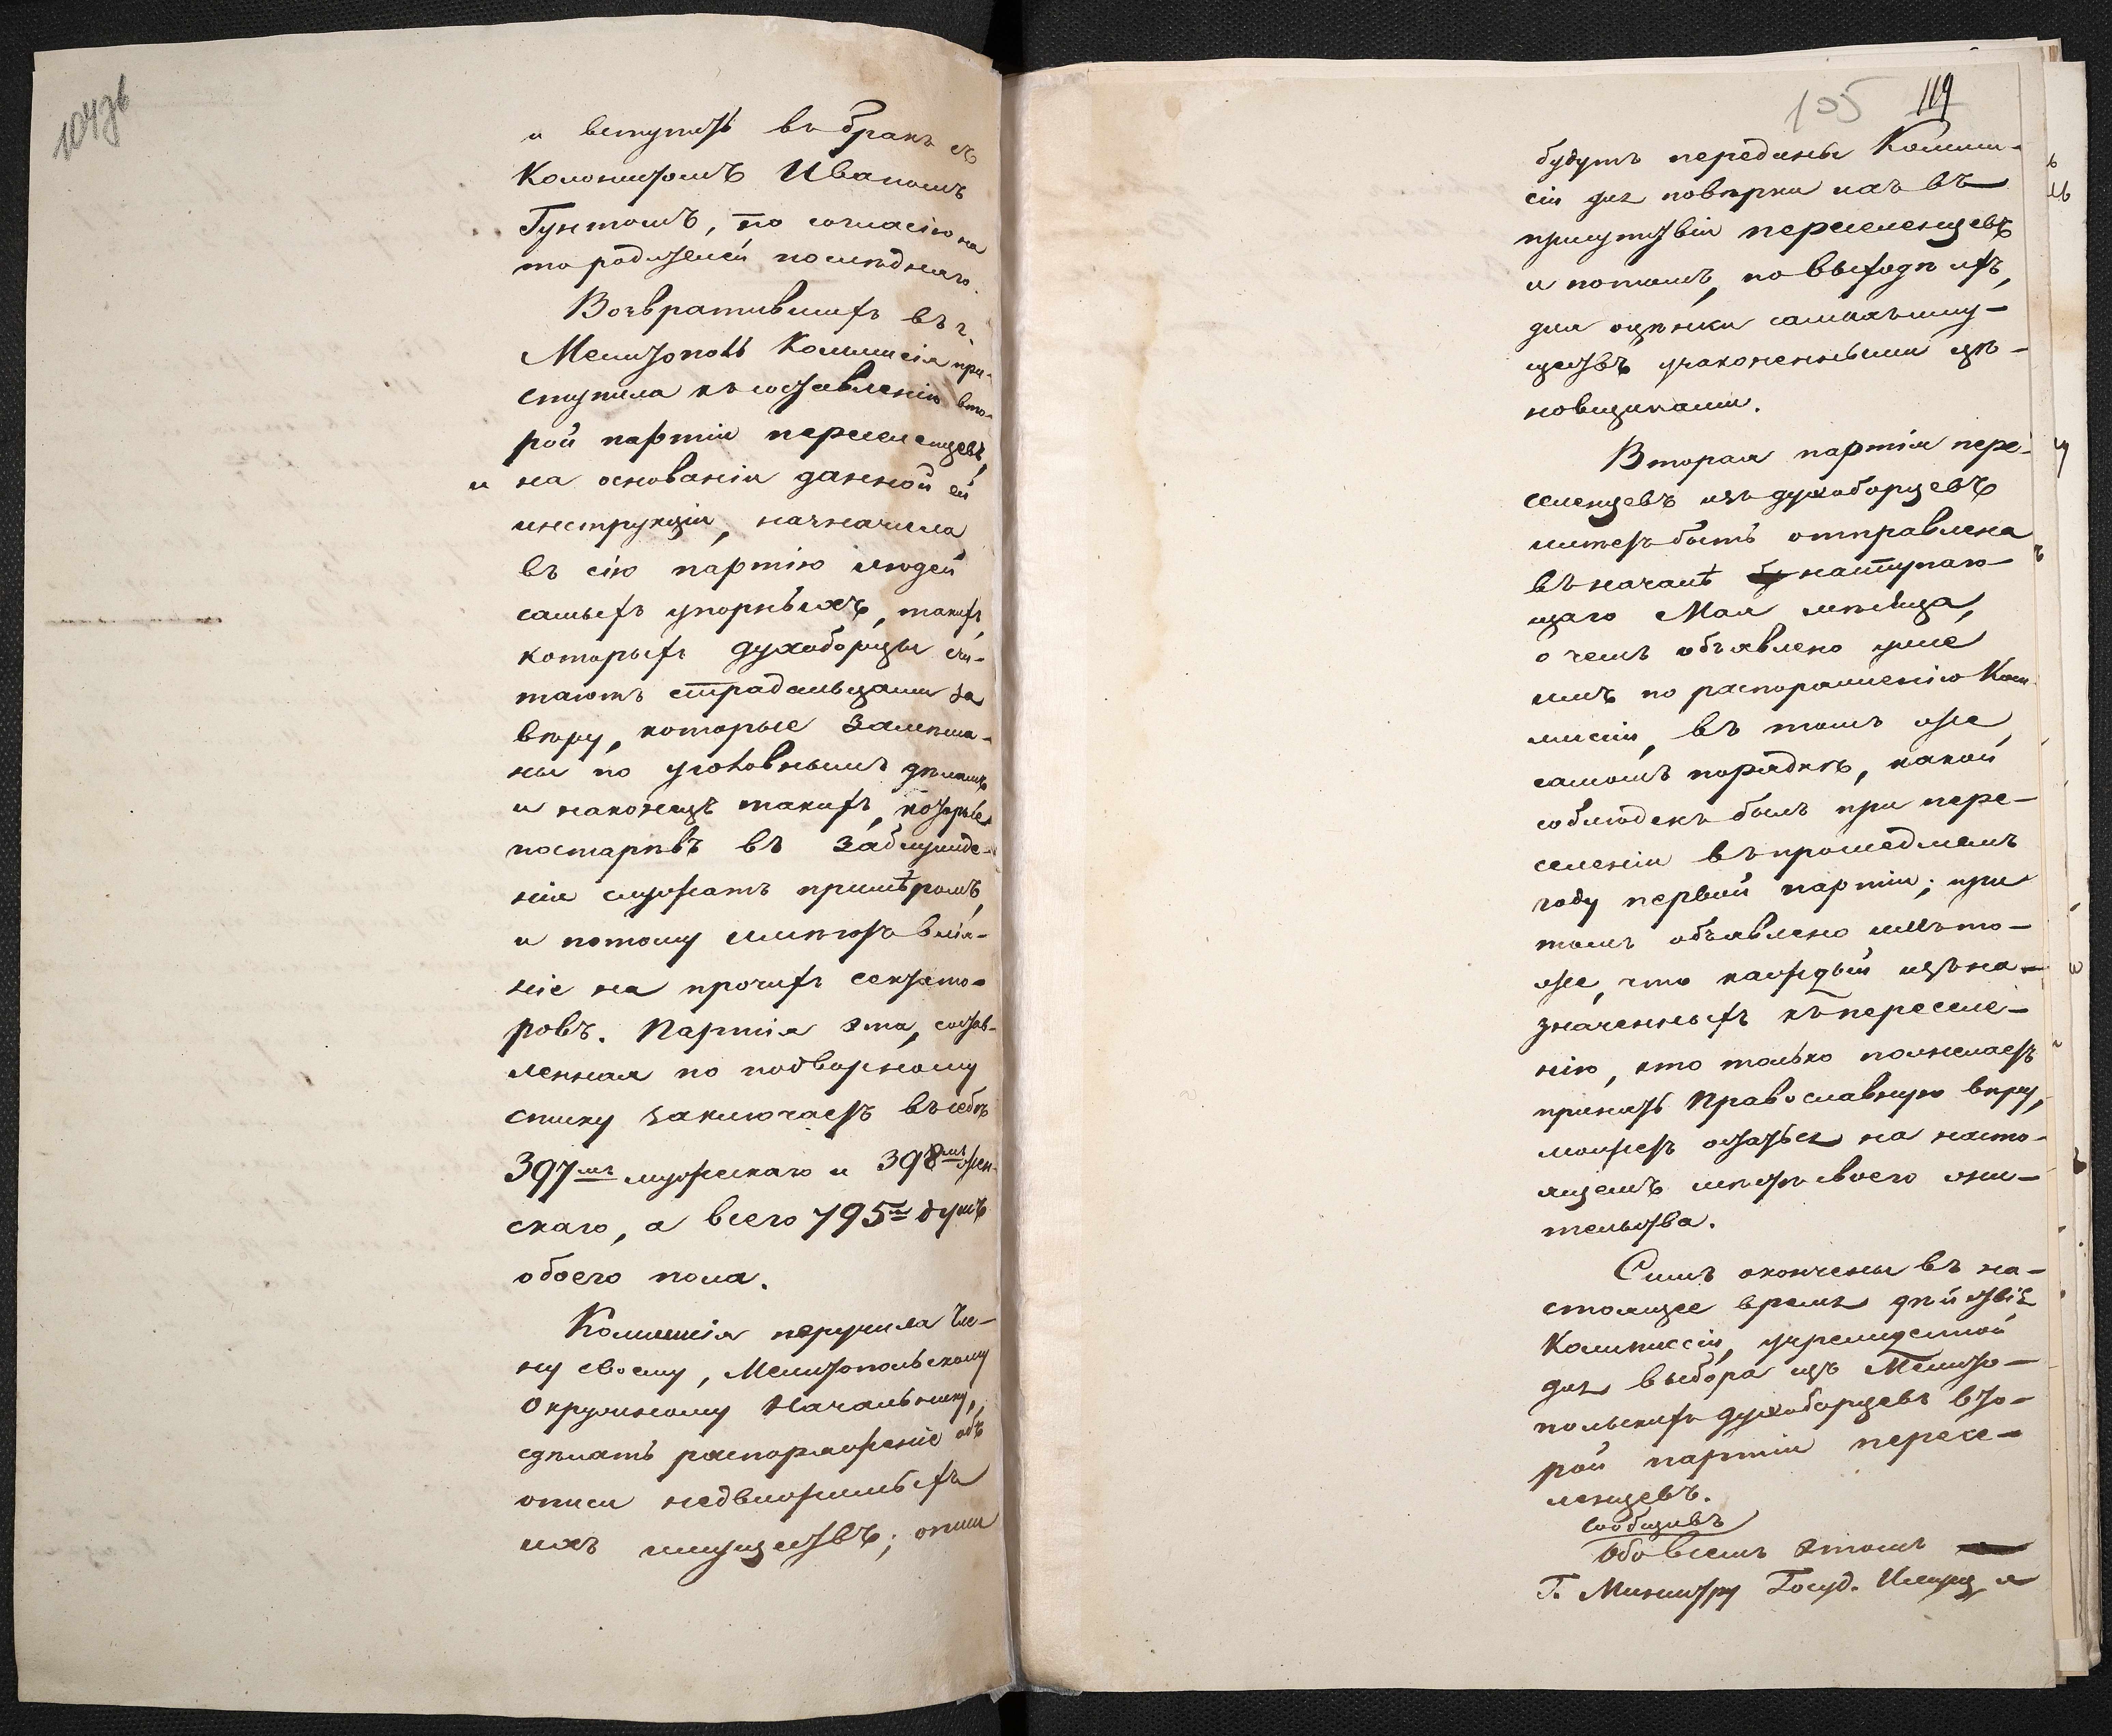 104 об
и вступить въ бракъ съ
Колонистомъ Иваномъ
Гунтомъ, по согласію на
то родителей послѣдняго.
Возвратившись въ г.
Мелитополь Коммисія при-
ступила къ составленію вто-
рой партіи переселенцевъ,
и на основаніи данной ей
инструкціи, назначила
въ сію партію людей
самыхъ упорныхъ, такихъ,
которыхъ духоборцы счи-
таютъ страдальцами за
вѣру, которые замѣша-
ны по уголовнымъ дѣламъ,
и наконецъ такихъ, которые
постарѣвъ въ заблужде-
ніи служатъ примѣромъ,
и потому имѣютъ влія-
ніе на прочихъ сектато-
ровъ. Партія эта, состав-
ленная по подворному
списку заключаетъ въ себѣ
397мъ мужескаго и 398мъ жен-
скаго, а всего 795ть душъ
обоего пола.
Коммисія поручила Чле-
ну своему, Мелитопольскому
Окружному Начальнику,
сдѣлать распоряженіе объ
описи недвижимыхъ
ихъ имуществъ; описи
105 119
будутъ переданы Коммис-
сіи для повѣрки ихъ въ
присутствіи переселенцевъ
и потомъ, по выходѣ ихъ,
для оцѣнки самихъ иму-
ществъ узаконенными цѣ-
новщиками.
Вторая партія пере-
селенцевъ изъ духоборцевъ
имѣетъ быть отправлена
въ началѣ наступаю-
щаго Мая мѣсяца,
о чемъ объявлено уже
имъ по распоряженію Ком-
мисіи, въ томъ же
самомъ порядкѣ, какой
соблюденъ былъ при пере-
селеніи въ прошедшемъ
году первой партіи; при
томъ объявлено имъ то-
же, что каждый изъ на-
значенныхъ къ переселе-
нію, кто только пожелаетъ
принять Православную вѣру,
можетъ остаться на насто-
ящемъ мѣстѣ своего жи-
тельства.
Симъ окончены въ на-
стоящее время дѣйствія
Коммиссіи, учрежденной
для выбора изъ Мелито-
польскихъ духоборцевъ вто-
рой партіи пересе-
ленцевъ.
Сообщивъ
Обо всемъ этомъ
Г. Министру Госуд. Имущ. я